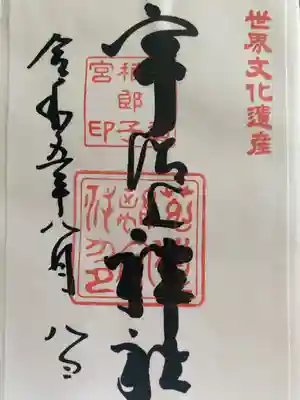 世界文化遺産
宇治上神社
郎子
宮印
令和五年八月
八日